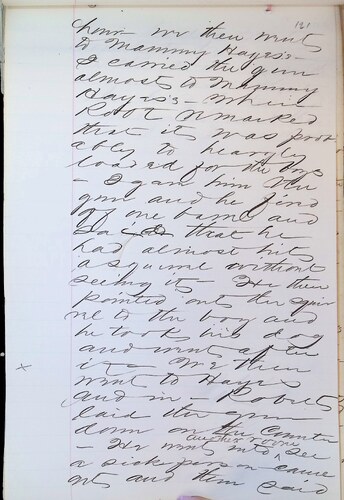 161
hour we then went
to Mammy Hayes's -
I carried the gun
almost to Mammy
Hayes's - where
Robt remarked
that it was prob
ably to heavily
loaded for the boys
- I gave him the
gun and he fired
off one barrel and
Said that he
had almost hit
a squirrel without
seeing it - He then
pointed out the squir
rel to the boy and
he took his dog
and went after
it - We then
went to Hayes
and in - Roberts
laid the gun
down on the Counter
another room
- He went into see
a sick person - came
out and then said